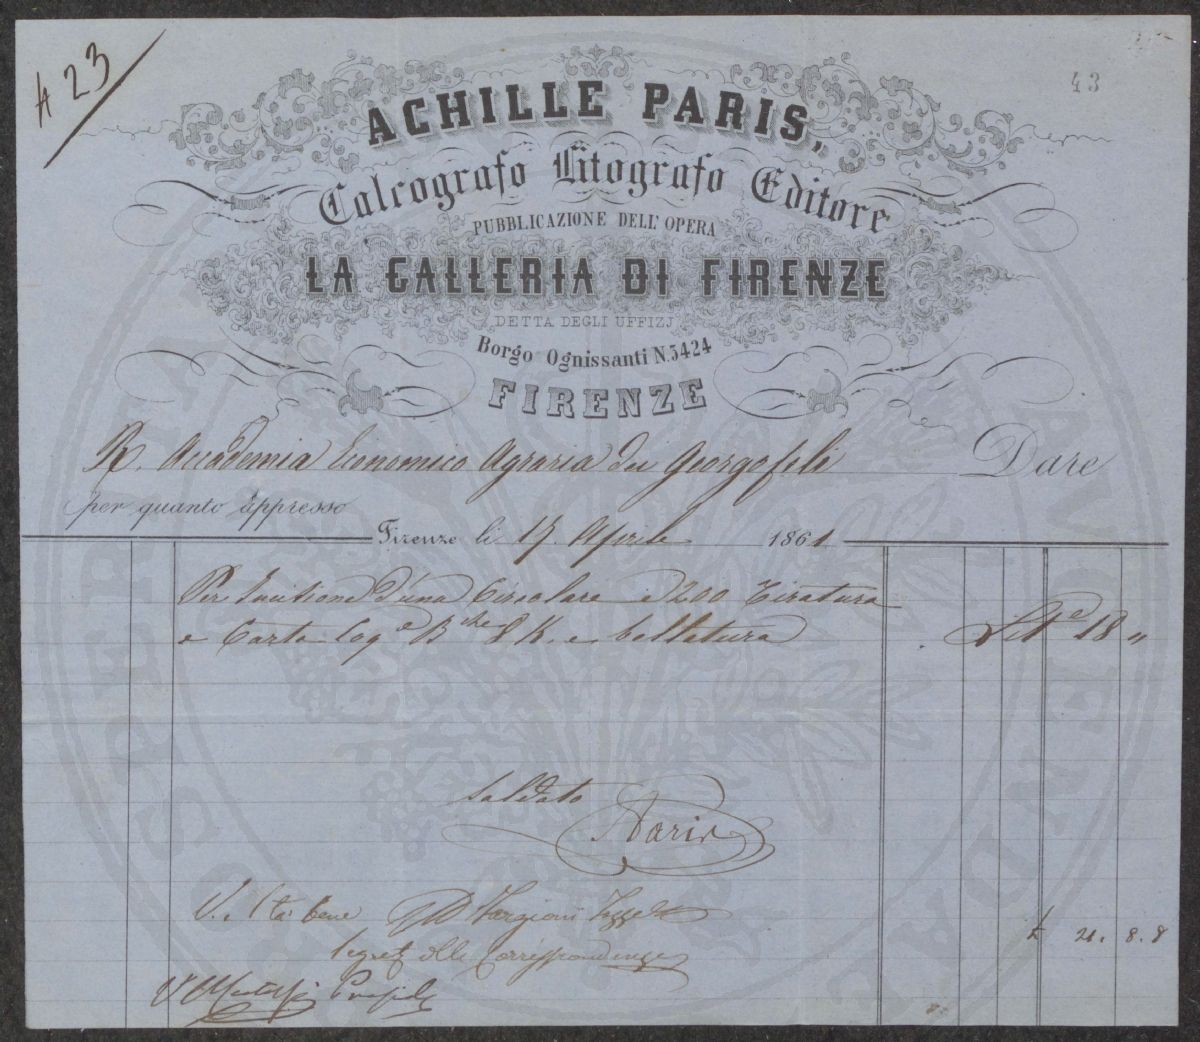 A 23
43
ACHILLE PARIS,
Calcografo Litografo Editore
PUBBLICAZIONE DELL' OPERA
LA GALLERIA DI FIRENZE
DETTA DEGLI UFFIZJ
Borgo Ognissanti N. 3424
FIRENZE
R. Accademia Economico Agraria dei Georgofili Dare
per quanto appresso
Firenze li 17. Aprile 1861
Per Incisione d'una Circolare e 200 Tiratura
e Carta 8 K. e
18 "
Saldato
AParis
V. Sta bene Targioni Tozzetti
Segret. delle Corrispondenze
V
£ 21. 8. 8
PROSPERITÀ